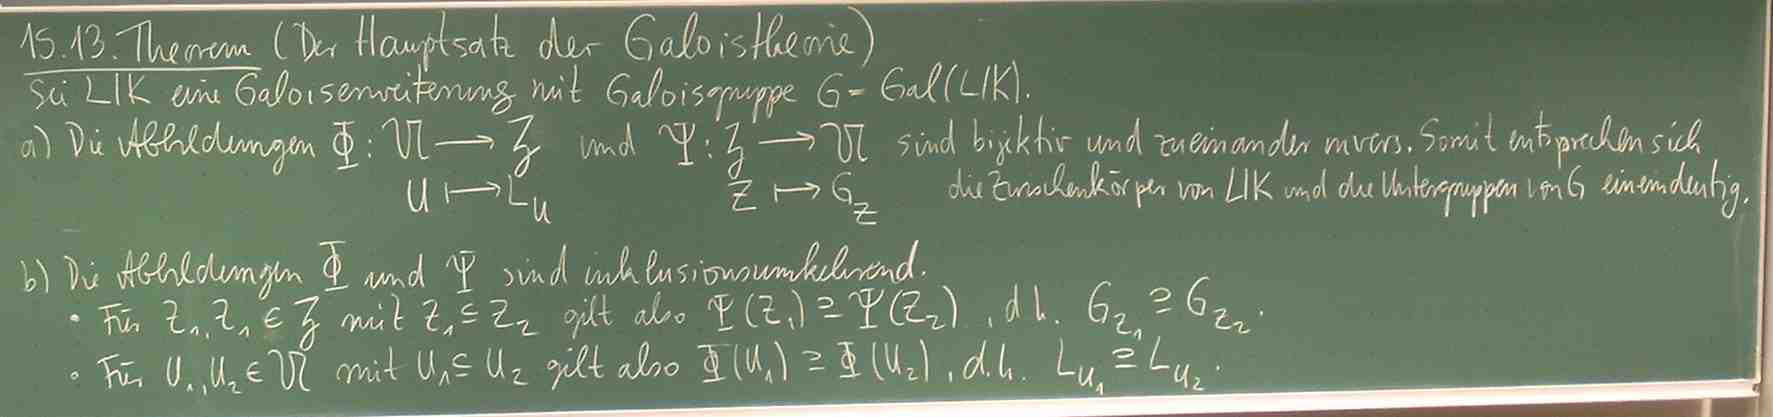 15.13. Theorem (Der Hauptsatz der Galoistheorie)
Sei L|K eine Galoiserweiterung mit Galoisgruppe G = Gal(L|K).
a) Die Abbildungen Φ: 𝔘 → ℨ und Ψ: ℨ → 𝔘 sind bijektiv und zueinander invers. Somit entsprechen sich
U ↦ L_U Z ↦ G_Z die Zwischenkörper von L|K und die Untergruppen von G eineindeutig.
b) Die Abbildungen Φ und Ψ sind inklusionsumkehrend.
• Für Z₁, Z₁ ∈ ℨ mit Z₁ ⊆ Z₂ gilt also Ψ(Z₁) ⊇ Ψ(Z₂), d.h. G_{Z₁} ⊇ G_{Z₂}.
• Für U₁, U₂ ∈ 𝔘 mit U₁ ⊆ U₂ gilt also Φ(U₁) ⊇ Φ(U₂), d.h. L_{U₁} ⊇ L_{U₂}.